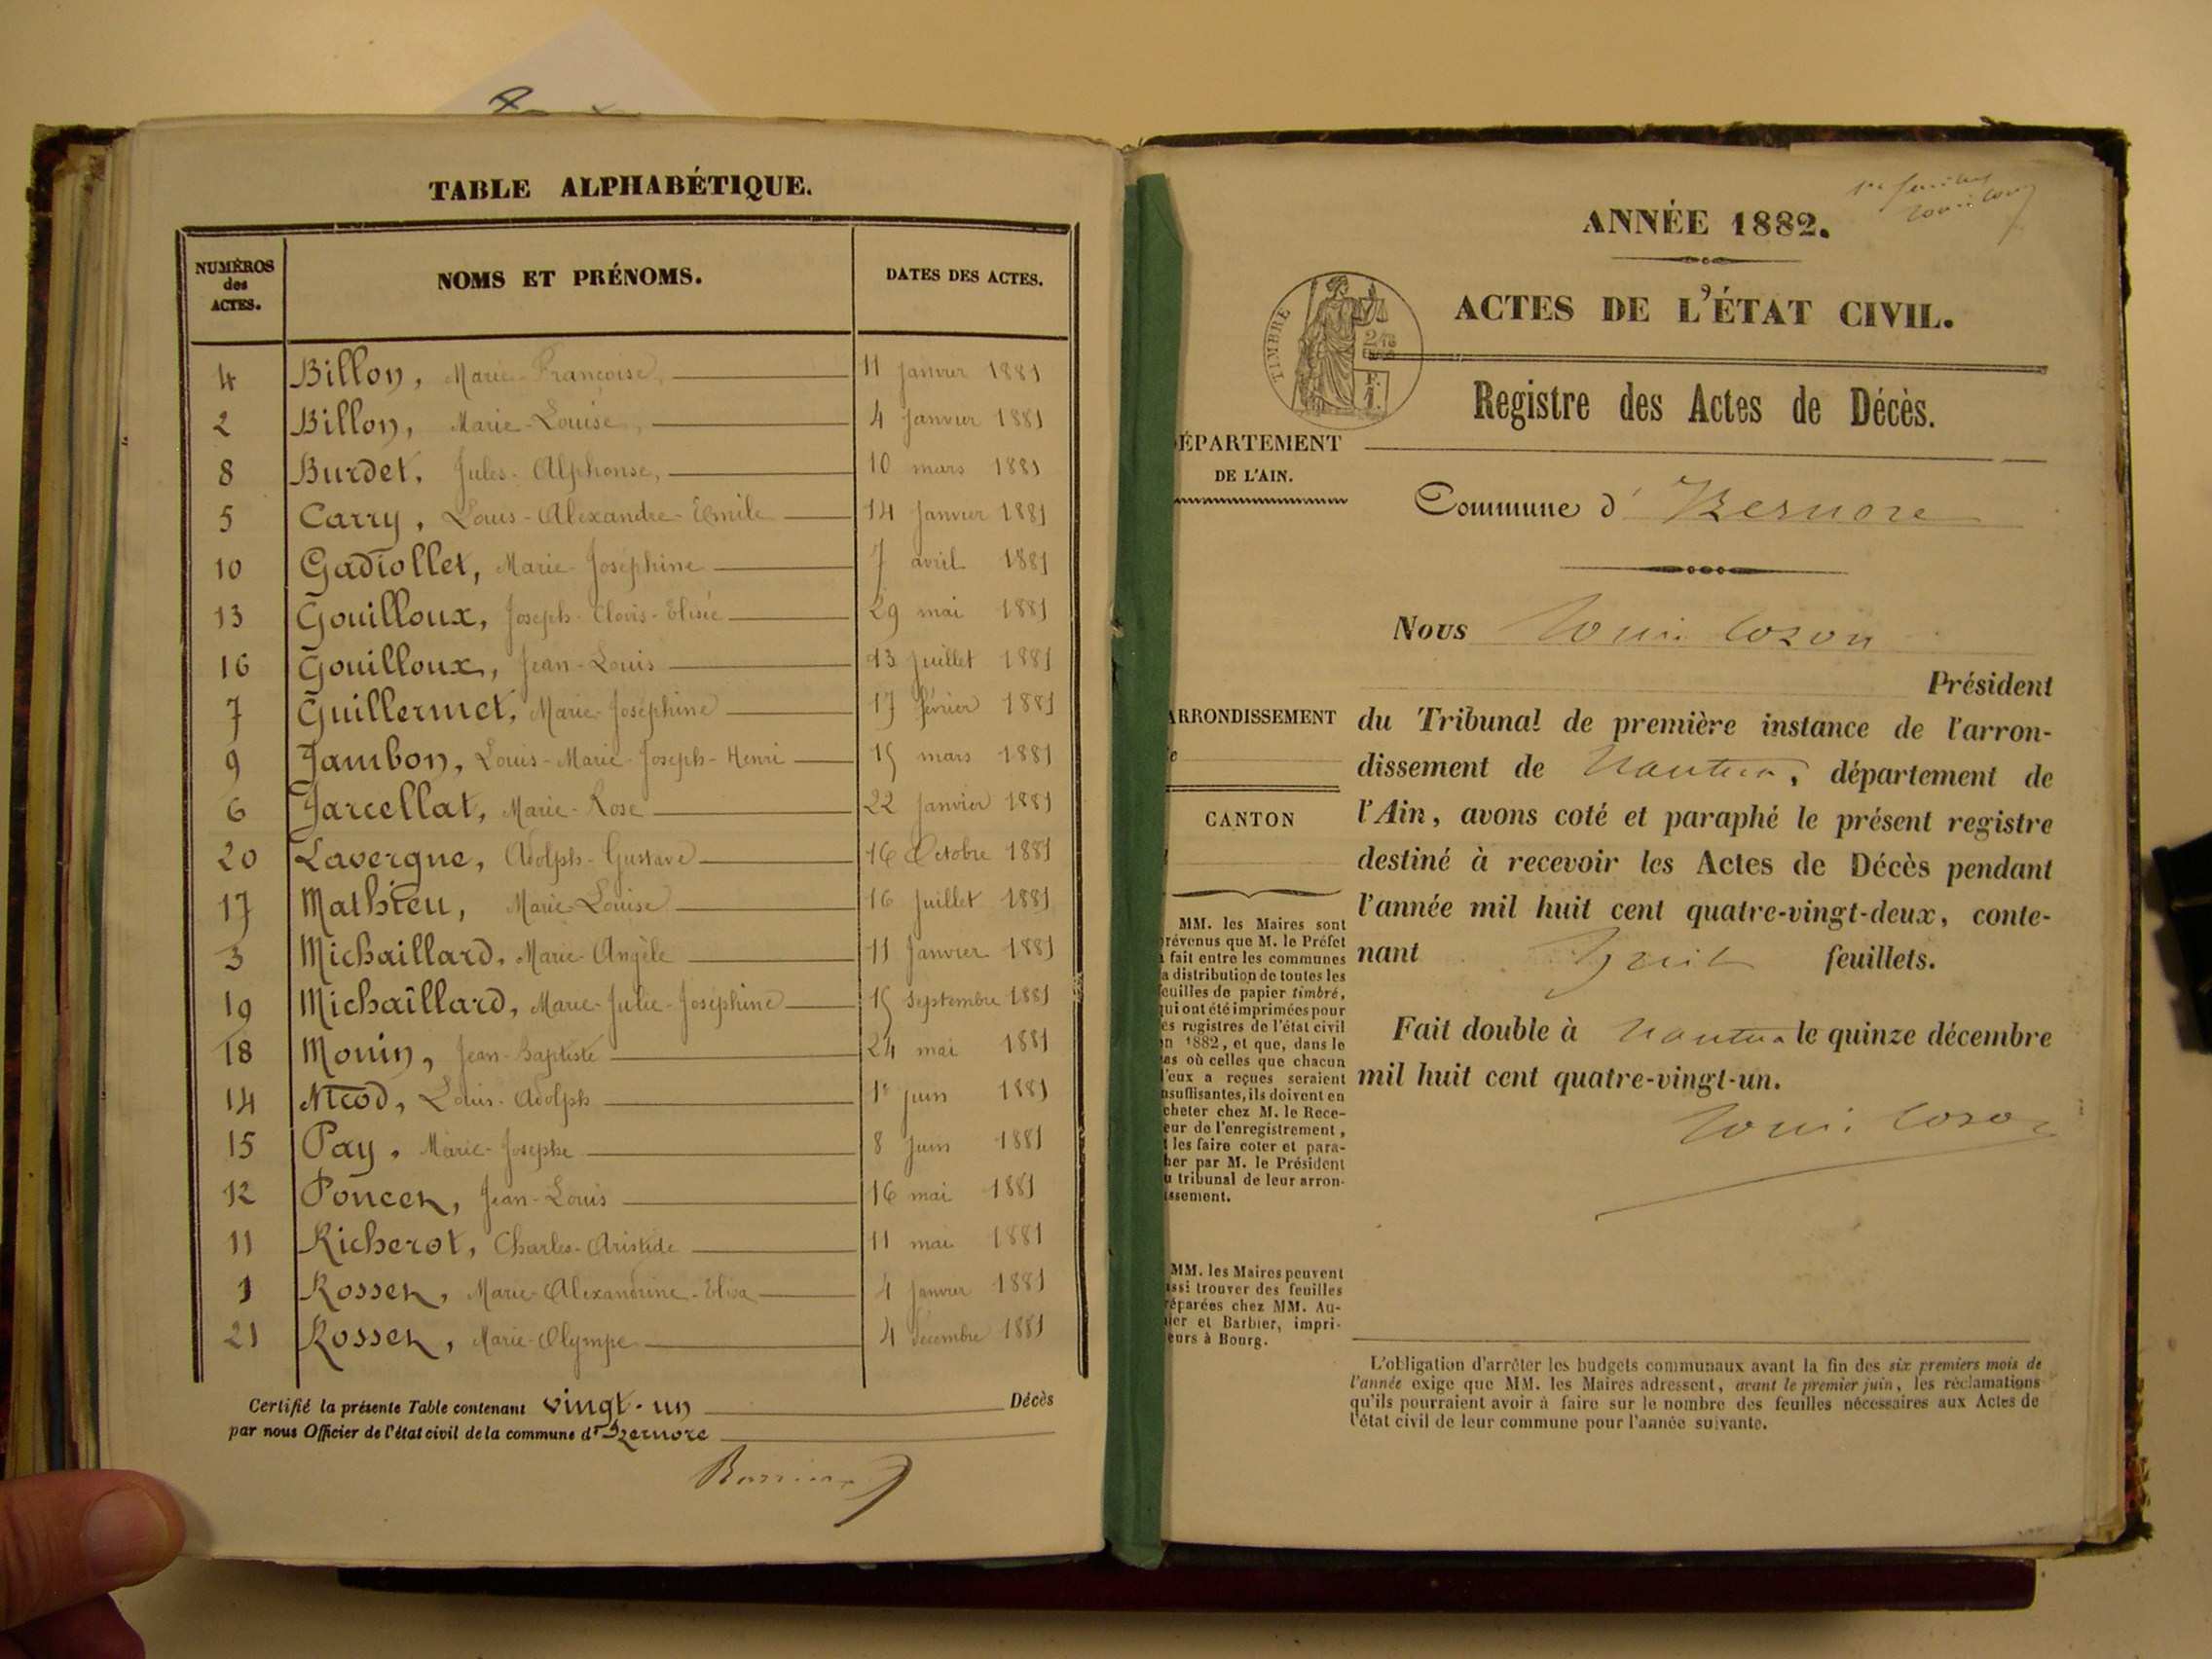 TABLE ALPHABÉTIQUE.
NUMÉROS des ACTES.
NOMS ET PRÉNOMS.
DATES DES ACTES.
4 Billon, Marie-Françoise, 11 janvier 1881
2 Billon, Marie-Louise, 4 janvier 1881
8 Burdet, Jules-Alphonse, 10 mars 1881
5 Carry, Louis-Alexandre-Emile 14 janvier 1881
10 Gadiollet, Marie-Joséphine 7 avril 1881
13 Gouilloux, Joseph-Clovis-Elisée 29 mai 1881
16 Gouilloux, Jean-Louis 13 juillet 1881
7 Guillermet, Marie-Joséphine 17 février 1881
9 Jambon, Louis-Marie-Joseph-Henri 15 mars 1881
6 Jarcellat, Marie-Rose 22 janvier 1881
20 Lavergne, Adolph-Gustave 16 Octobre 1881
17 Mathieu, Marie-Louise 16 juillet 1881
3 Michaillard, Marie-Angèle 11 janvier 1881
19 Michaillard, Marie-Julie-Joséphine 15 septembre 1881
18 Monin, Jean-Baptiste 24 mai 1881
14 Nicod, Louis-Adolph 1er juin 1881
15 Pay, Marie-Josephe 8 juin 1881
12 Poncet, Jean-Louis 16 mai 1881
11 Richerot, Charles-Aristide 11 mai 1881
1 Rosset, Marie-Alexandrine-Eliza 4 janvier 1881
21 Rosset, Marie-Olympe 4 décembre 1881
Certifié la présente Table contenant vingt-un Décès
par nous Officier de l'état civil de la commune d'Izernore
ANNÉE 1882.
ACTES DE L'ÉTAT CIVIL.
TIMBRE
Registre des Actes de Décès.
DÉPARTEMENT
DE L'AIN.
Commune d'Izernore
Nous
Président
ARRONDISSEMENT
du Tribunal de première instance de l'arron-
dissement de Nantua, département de
CANTON
l'Ain, avons coté et paraphé le présent registre
destiné à recevoir les Actes de Décès pendant
l'année mil huit cent quatre-vingt-deux, conte-
nant huit feuillets.
Fait double à Nantua le quinze décembre
mil huit cent quatre-vingt-un.
MM. les Maires sont
prévenus que M. le Préfet
a fait entre les communes
la distribution de toutes les
feuilles de papier timbré,
qui ont été imprimées pour
les registres de l'état civil
en 1882, et que, dans le
cas où celles que chacun
d'eux a reçues seraient
insuffisantes, ils doivent en
acheter chez M. le Rece-
veur de l'enregistrement,
et les faire coter et para-
pher par M. le Président
du tribunal de leur arron-
dissement.
MM. les Maires peuvent
aussi trouver des feuilles
préparées chez MM. Au-
thier et Barbier, impri-
meurs à Bourg.
L'obligation d'arrêter les budgets communaux avant la fin des six premiers mois de
l'année exige que MM. les Maires adressent, avant le premier juin, les réclamations
qu'ils pourraient avoir à faire sur le nombre des feuilles nécessaires aux Actes de
l'état civil de leur commune pour l'année suivante.